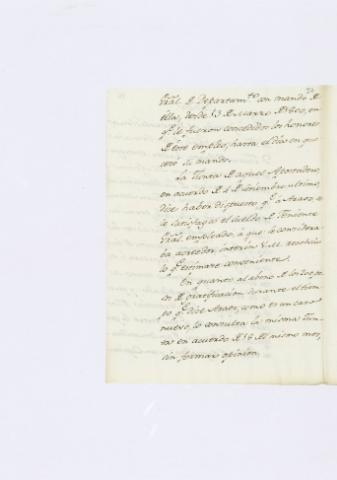 Gral. D Departam.to con mando D
illa, desde 13 D Marzo D 800, en
q.e le fueron concedidos los honores
D este empleo, hasta el dia en que
cesó su mando.
La Junta D aquel Apostadero,
en acuerdo D 4 D Diciembre ultimo,
dice haber dispuesto q.e a Araoz, se
le satisfaga el sueldo D Teniente
Gral. empleado, á que le considera
ba acrehedor, interin V.M. resolvia
lo q.e estimare conveniente.
En quanto al abono D los
D gratificacion durante el tiem-
po q.e dice Araoz, como es un caso
nuevo, lo consulta la misma Jun-
ta en acuerdo D 18 D mismo mes,
sin formar opinion.